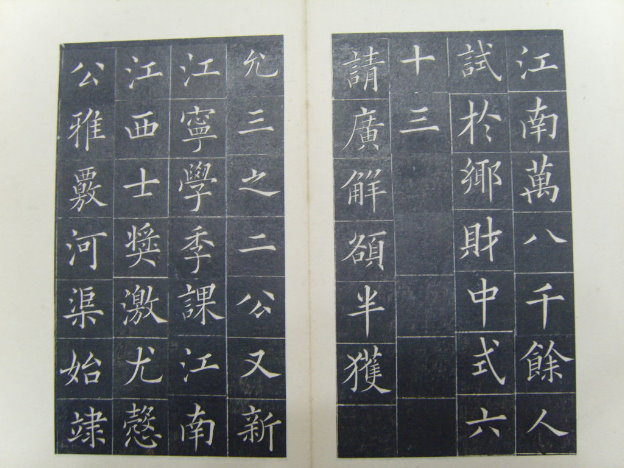 江南萬八千餘人
試於鄉財中式六
十三
請廣解額半獲
允三之二公又新
江寧學季課江南
江西士獎激尤慇
公雅覈河渠始